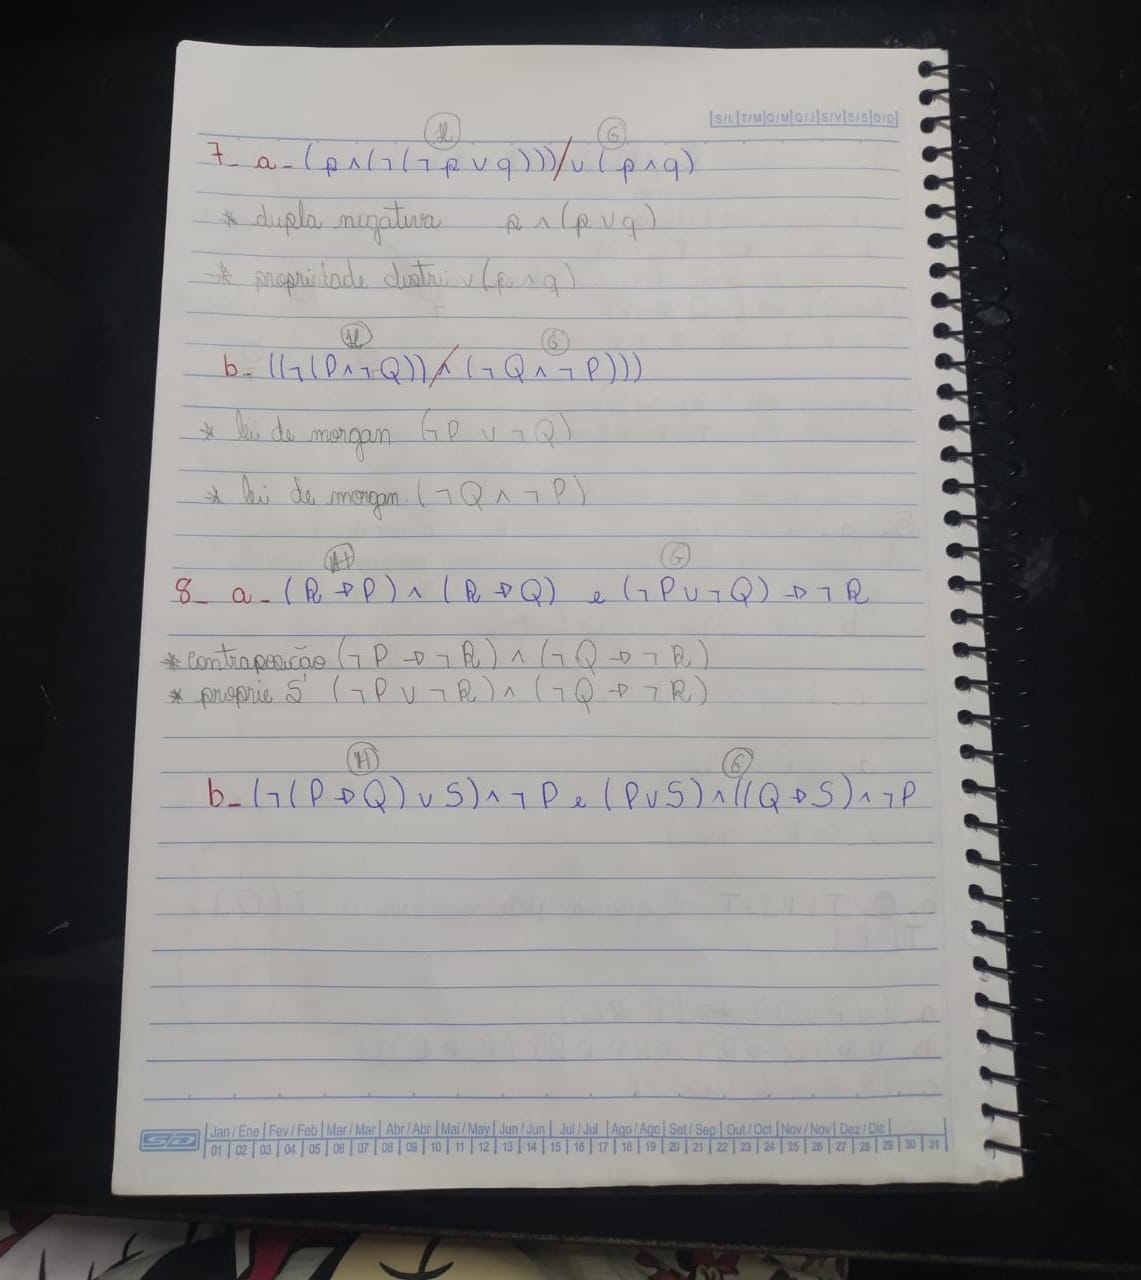 S/L|T/M|Q/M|Q/J|S/V|S/S|D/D
H G
7- a- (p∧(¬(¬p∨q)))/∨(p∧q)
* dupla negativa p∧(p∨q)
* propriedade distri ∨(p∧q)
H G
b- ((¬(P∧¬Q))/∧(¬Q∧¬P)))
* lei de morgan (¬P ∨ ¬Q)
* lei de morgan (¬Q ∧ ¬P)
H G
8- a- (R→P) ∧ (R→Q) e (¬P∨¬Q) → ¬R
* contraposição (¬P → ¬R) ∧ (¬Q → ¬R)
* proprie 5' (¬P ∨ ¬R) ∧ (¬Q → ¬R)
H G
b- (¬(P→Q)∨S)∧¬P e (P∨S)∧((Q→S)∧¬P
SD Jan/Ene | Fev/Feb | Mar/Mar | Abr/Abr | Mai/May | Jun/Jun | Jul/Jul | Ago/Ago | Set/Sep | Out/Oct | Nov/Nov | Dez/Dic
01 02 03 04 05 06 07 08 09 10 11 12 13 14 15 16 17 18 19 20 21 22 23 24 25 26 27 28 29 30 31